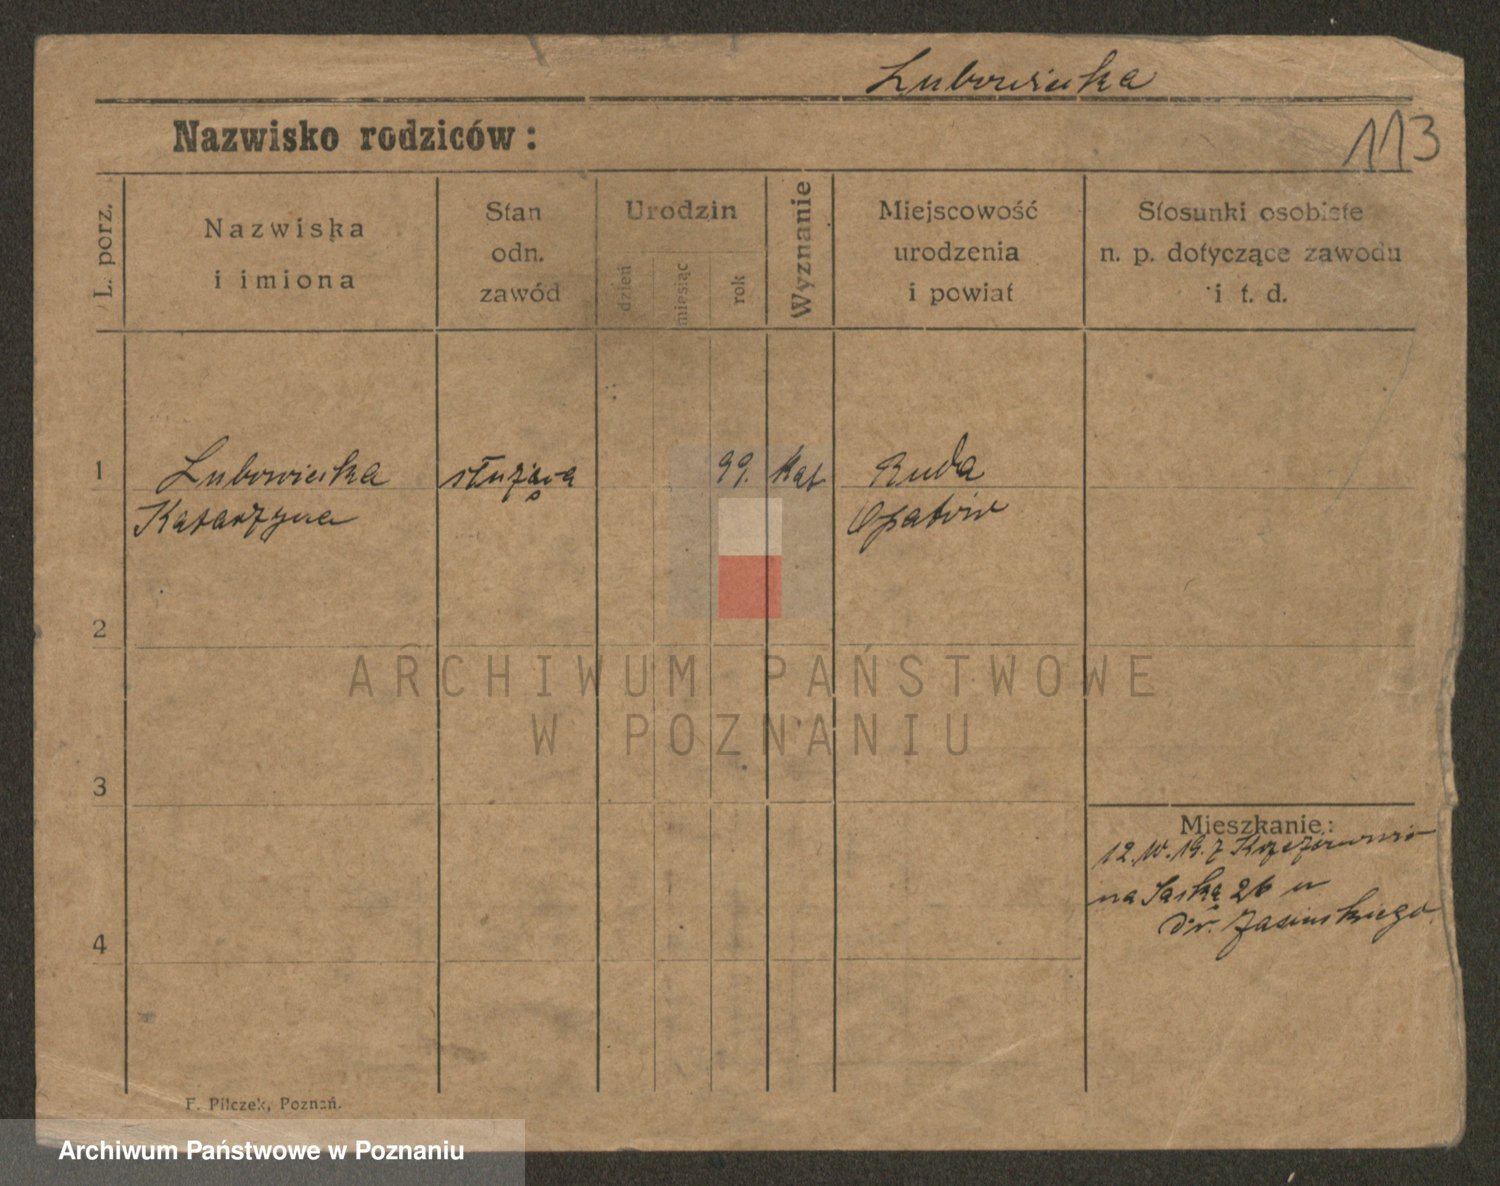 Lubowiecka
113
Nazwisko rodziców:
L. porz.
Nazwiska
i imiona
Stan
odn.
zawód
Urodzin
dzień
miesiąc
rok
Wyznanie
Miejscowość
urodzenia
i powiat
Stosunki osobiste
n. p. dotyczące zawodu
i t. d.
1
Lubowiecka
Katarzyna
służąca
99.
kat
Ruda
Opatów
2
ARCHIWUM PAŃSTWOWE
W POZNANIU
3
Mieszkanie:
na Saską 26 u
dr. Jasińskiego
4
F. Pilczek, Poznań.
Archiwum Państwowe w Poznaniu